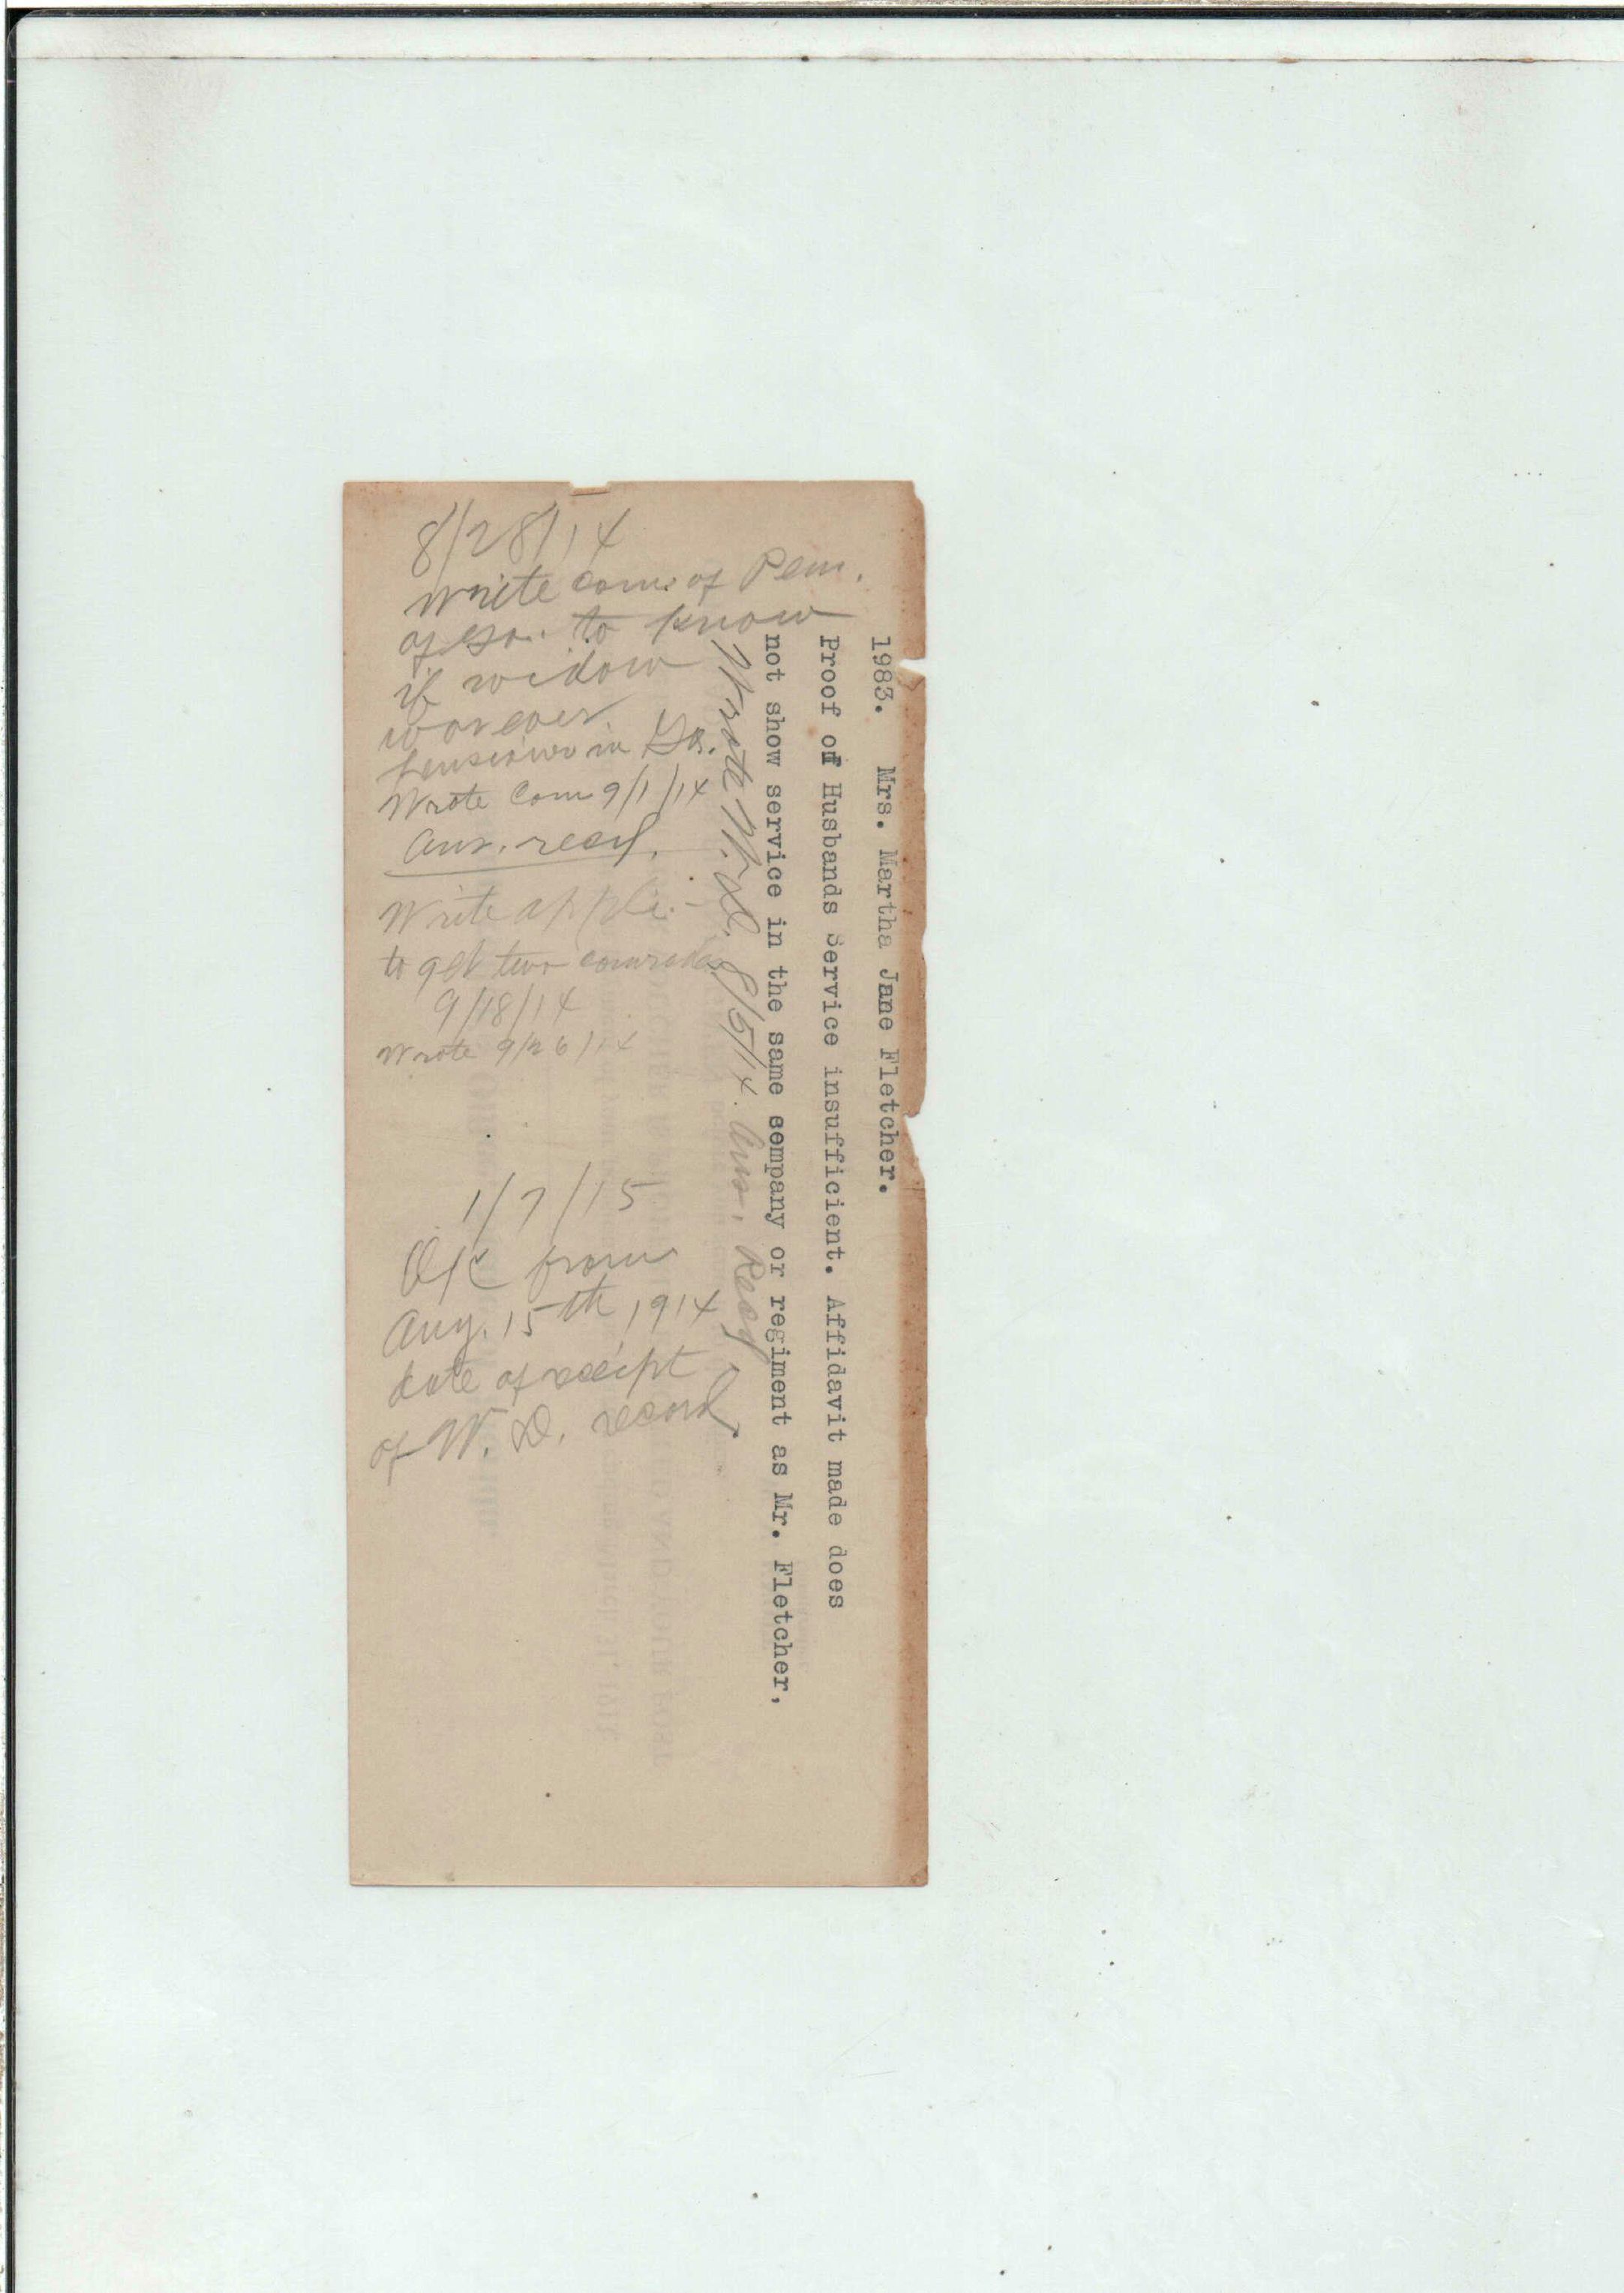 1983. Mrs. Martha Jane Fletcher.
Proof of Husbands Service insufficient. Affidavit made does
not show service in the same company or regiment as Mr. Fletcher,
Wrote W. D. 8/5/14. Ans. Recd
8/28/14
Write com. of Pen.
of Ga. to know
if widow
was ever
pensioner in Ga.
Wrote Com 9/1/14
Ans. recd.
Write appli.-
to get two comrades
9/18/14
Wrote 9/26/14
1/7/15
OK from
Aug. 15th 1914
date of receipt
of W. D. record